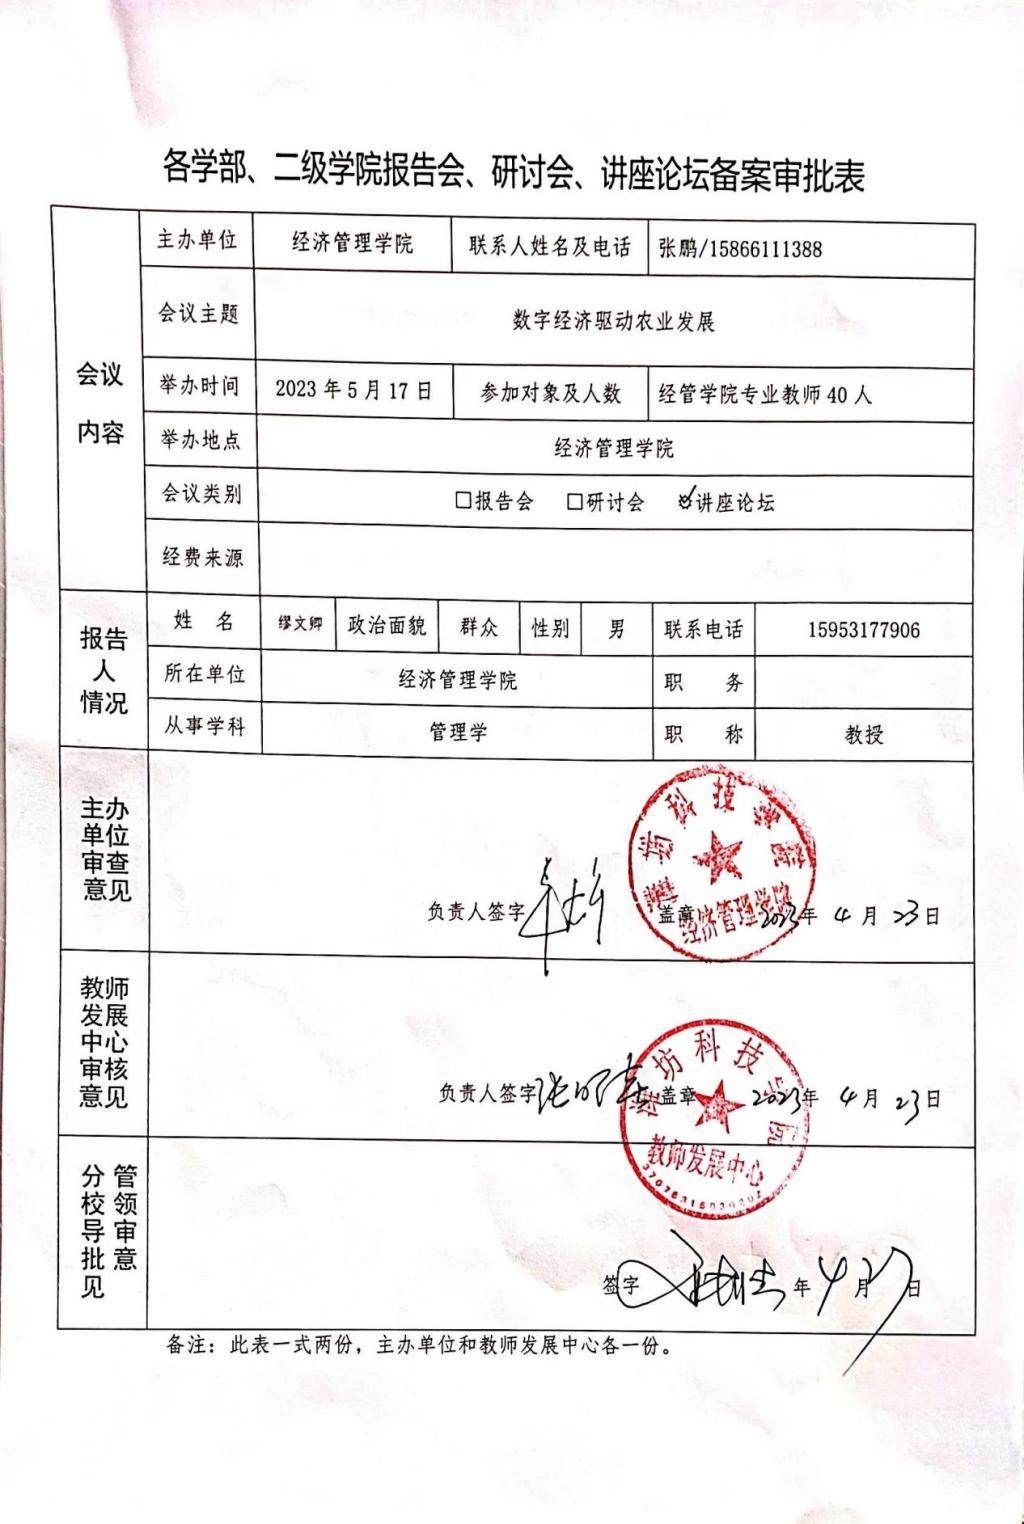 各学部、二级学院报告会、研讨会、讲座论坛备案审批表
会议
内容
主办单位 经济管理学院 联系人姓名及电话 张鹏/15866111388
会议主题 数字经济驱动农业发展
举办时间 2023年5月17日 参加对象及人数 经管学院专业教师40人
举办地点 经济管理学院
会议类别 □报告会 □研讨会 ☑讲座论坛
经费来源
报告
人
情况
姓 名 缪文卿 政治面貌 群众 性别 男 联系电话 15953177906
所在单位 经济管理学院 职 务
从事学科 管理学 职 称 教授
主办
单位
审查
意见
潍坊科技学院
经济管理学院
负责人签字 盖章 2023年4月23日
教师
发展
中心
审核
意见
潍坊科技学院
负责人签字 盖章 2023年4月23日
教师发展中心
分管
校领
导审
批意
见
签字 年4月27日
备注：此表一式两份，主办单位和教师发展中心各一份。